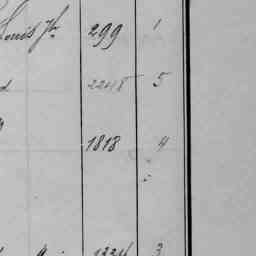 Louis Jh 299 1
2248 5
1818 4
1224 3